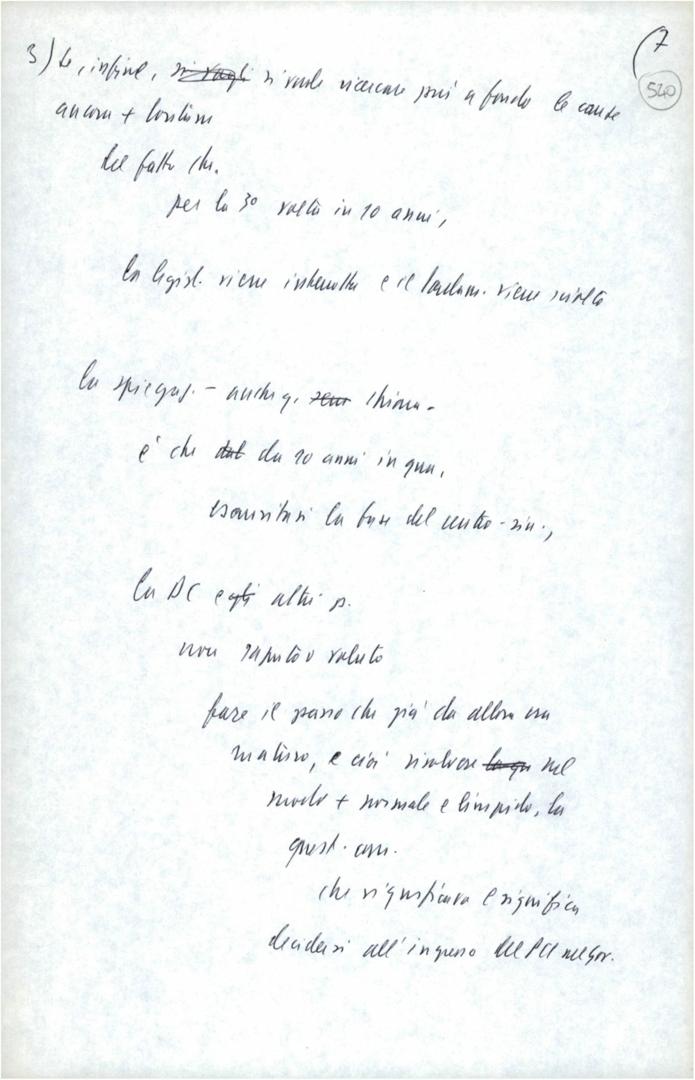 7
520
3) Se, infine, si vogli si vuole ricercare più a fondo le cause
ancora + lontane
del fatto che.
per la 3° volta in 10 anni,
la legisl. viene interrotta e il Parlam. viene sciolto
la spiegaz. - anche q. chiara -
è che dal da 10 anni in qua,
esauritasi la base del centro-sin.,
la DC e gli altri p.
non saputo o voluto
fare il passo che già da allora era
maturo, e cioè risolvere nel
modo + normale e limpido, la
quest. com.
che significava e significa
decidersi all'ingresso del PCI nel gov.